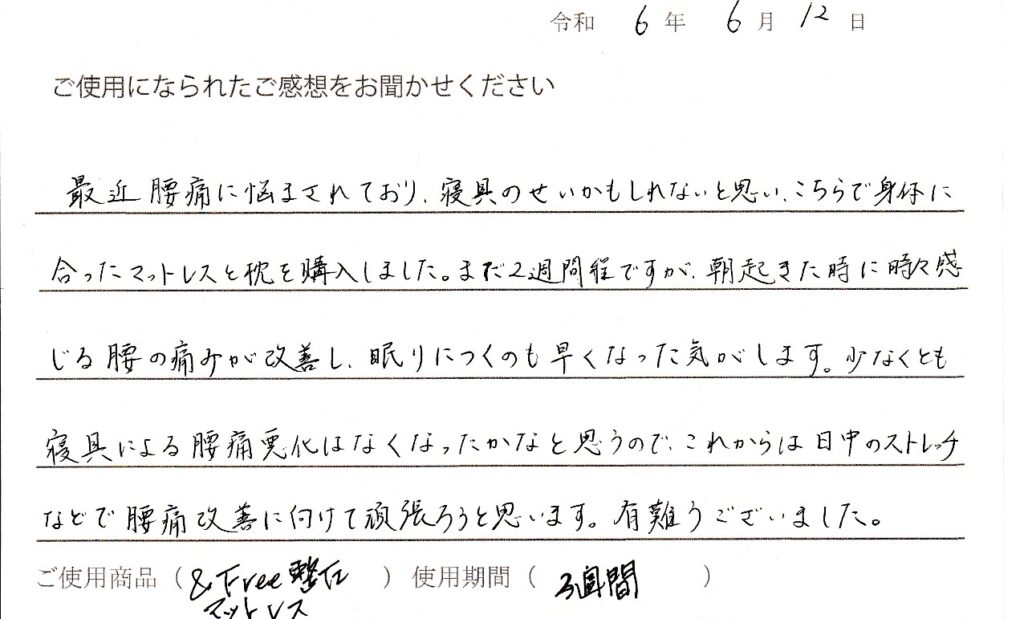 令和 6 年 6 月 12 日
ご使用になられたご感想をお聞かせください
最近腰痛に悩まされており、寝具のせいかもしれないと思い、こちらで身体に
合ったマットレスと枕を購入しました。まだ2週間程ですが、朝起きた時に時々感
じる腰の痛みが改善し、眠りにつくのも早くなった気がします。少なくとも
寝具による腰痛悪化はなくなったかなと思うので、これからは日中のストレッチ
などで腰痛改善に向けて頑張ろうと思います。有難うございました。
ご使用商品（&Free整圧）使用期間（3週間）
マットレス